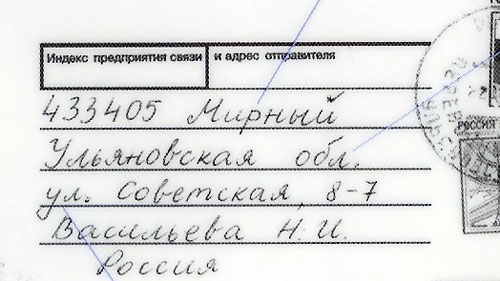 Индекс предприятия связи и адрес отправителя
433405 Мирный
Ульяновская обл.
ул. Советская, 8-7
Васильева Н. И.
Россия
РОССИЯ